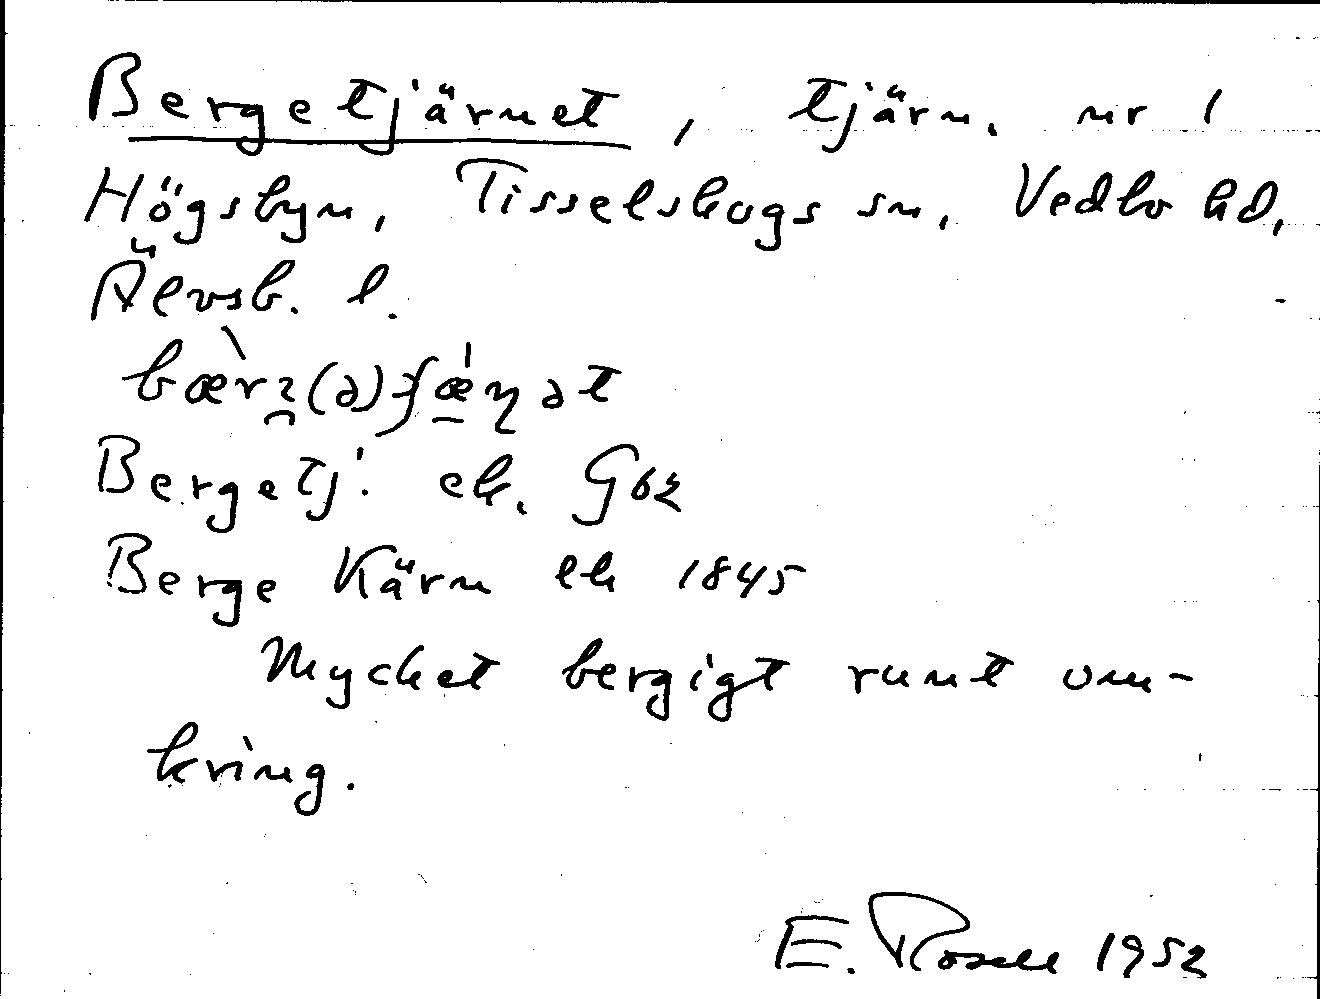 Bergetjärnet, tjärn. nr 1
Högsbyn, Tisselskogs sn, Vedbo hd,
Älvsb. l.
Bergetj. ek. Gbz
Berge Kärn lk 1845
Mycket bergigt runt om-
kring.
E. Rosell 1952